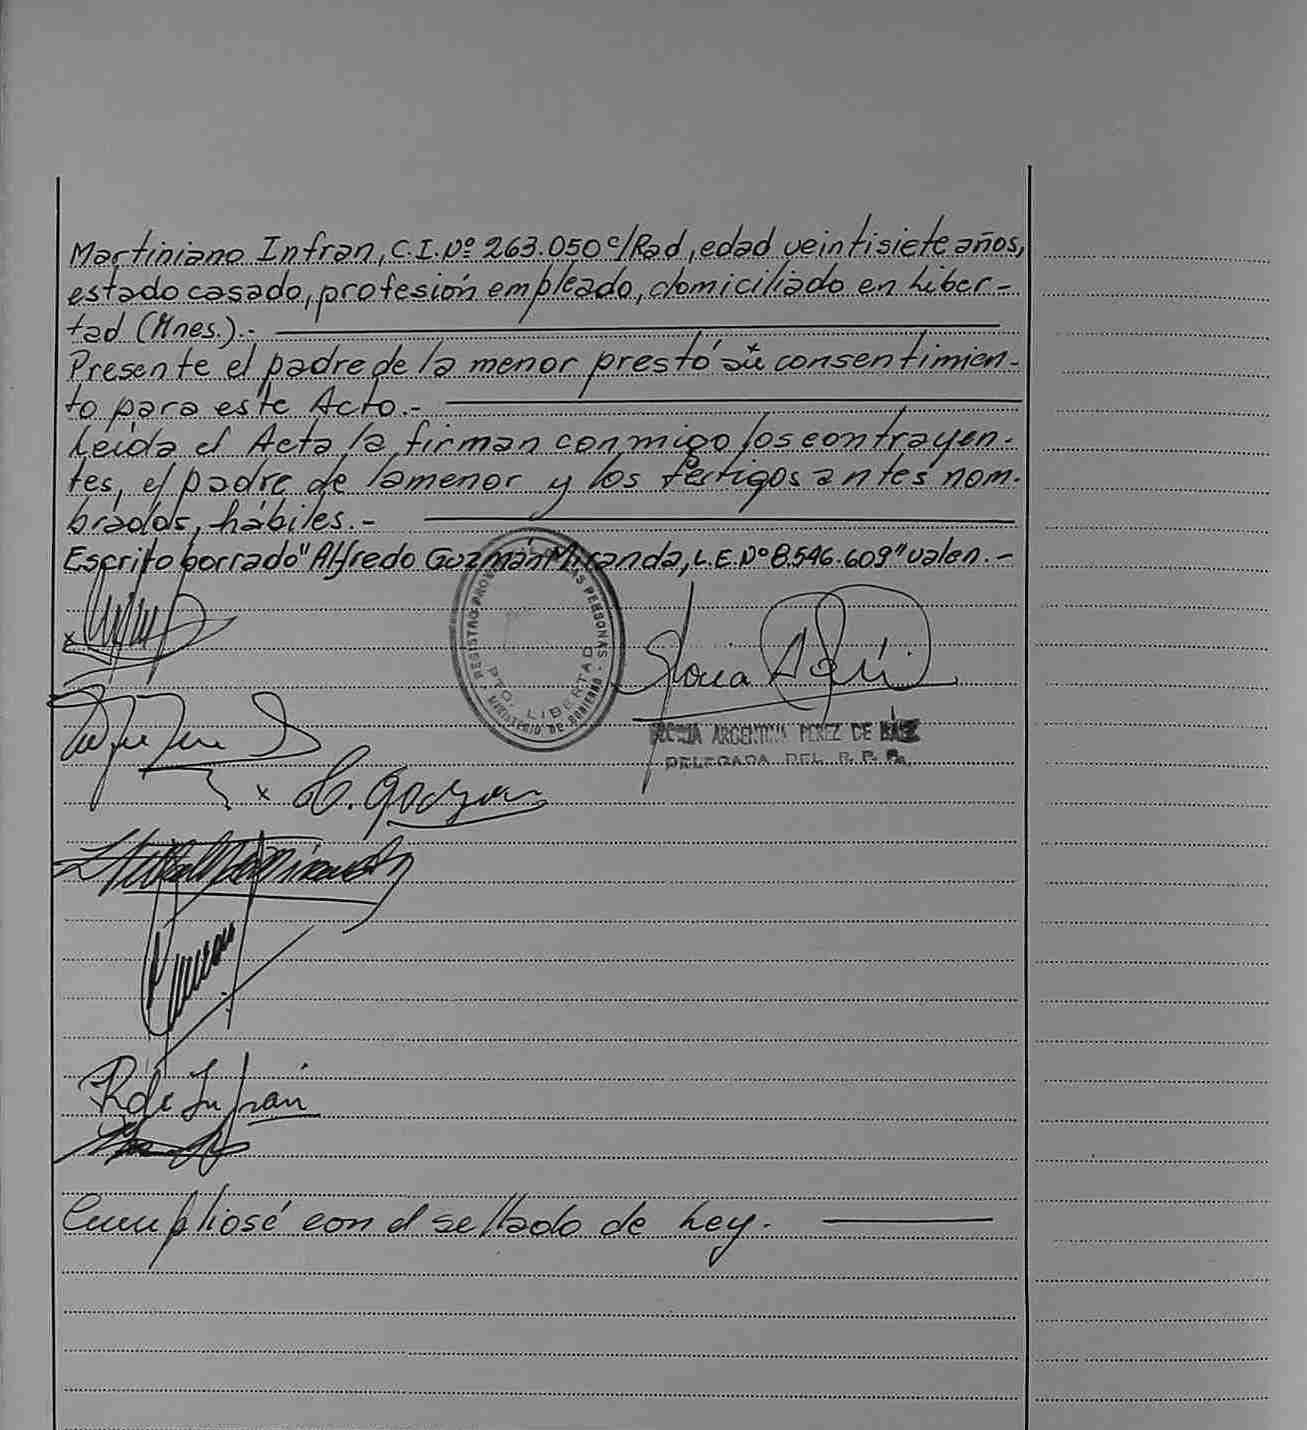 Martiniano Infran, C.I.Nº 263.050 c/Rad, edad veintisiete años,
estado casado, profesión empleado, domiciliado en Liber-
tad (Mnes.).-
Presente el padre de la menor prestó su consentimien-
to para este Acto.-
Leída el Acta la firman conmigo los contrayen-
tes, el padre de la menor y los testigos antes nom-
brados, hábiles.-
Escrito borrado "Alfredo Guzmán Miranda, L.E.Nº 8.546.609" valen.-
REGISTRO PROV. DE LAS PERSONAS
PTO. LIBERTAD
MINISTERIO DE GOBIERNO
Gloria
ARGENTINA PEREZ DE BAEZ
DELEGADA DEL R. P. P.
x
x
Infrán
Cumpliosé con el sellado de Ley.